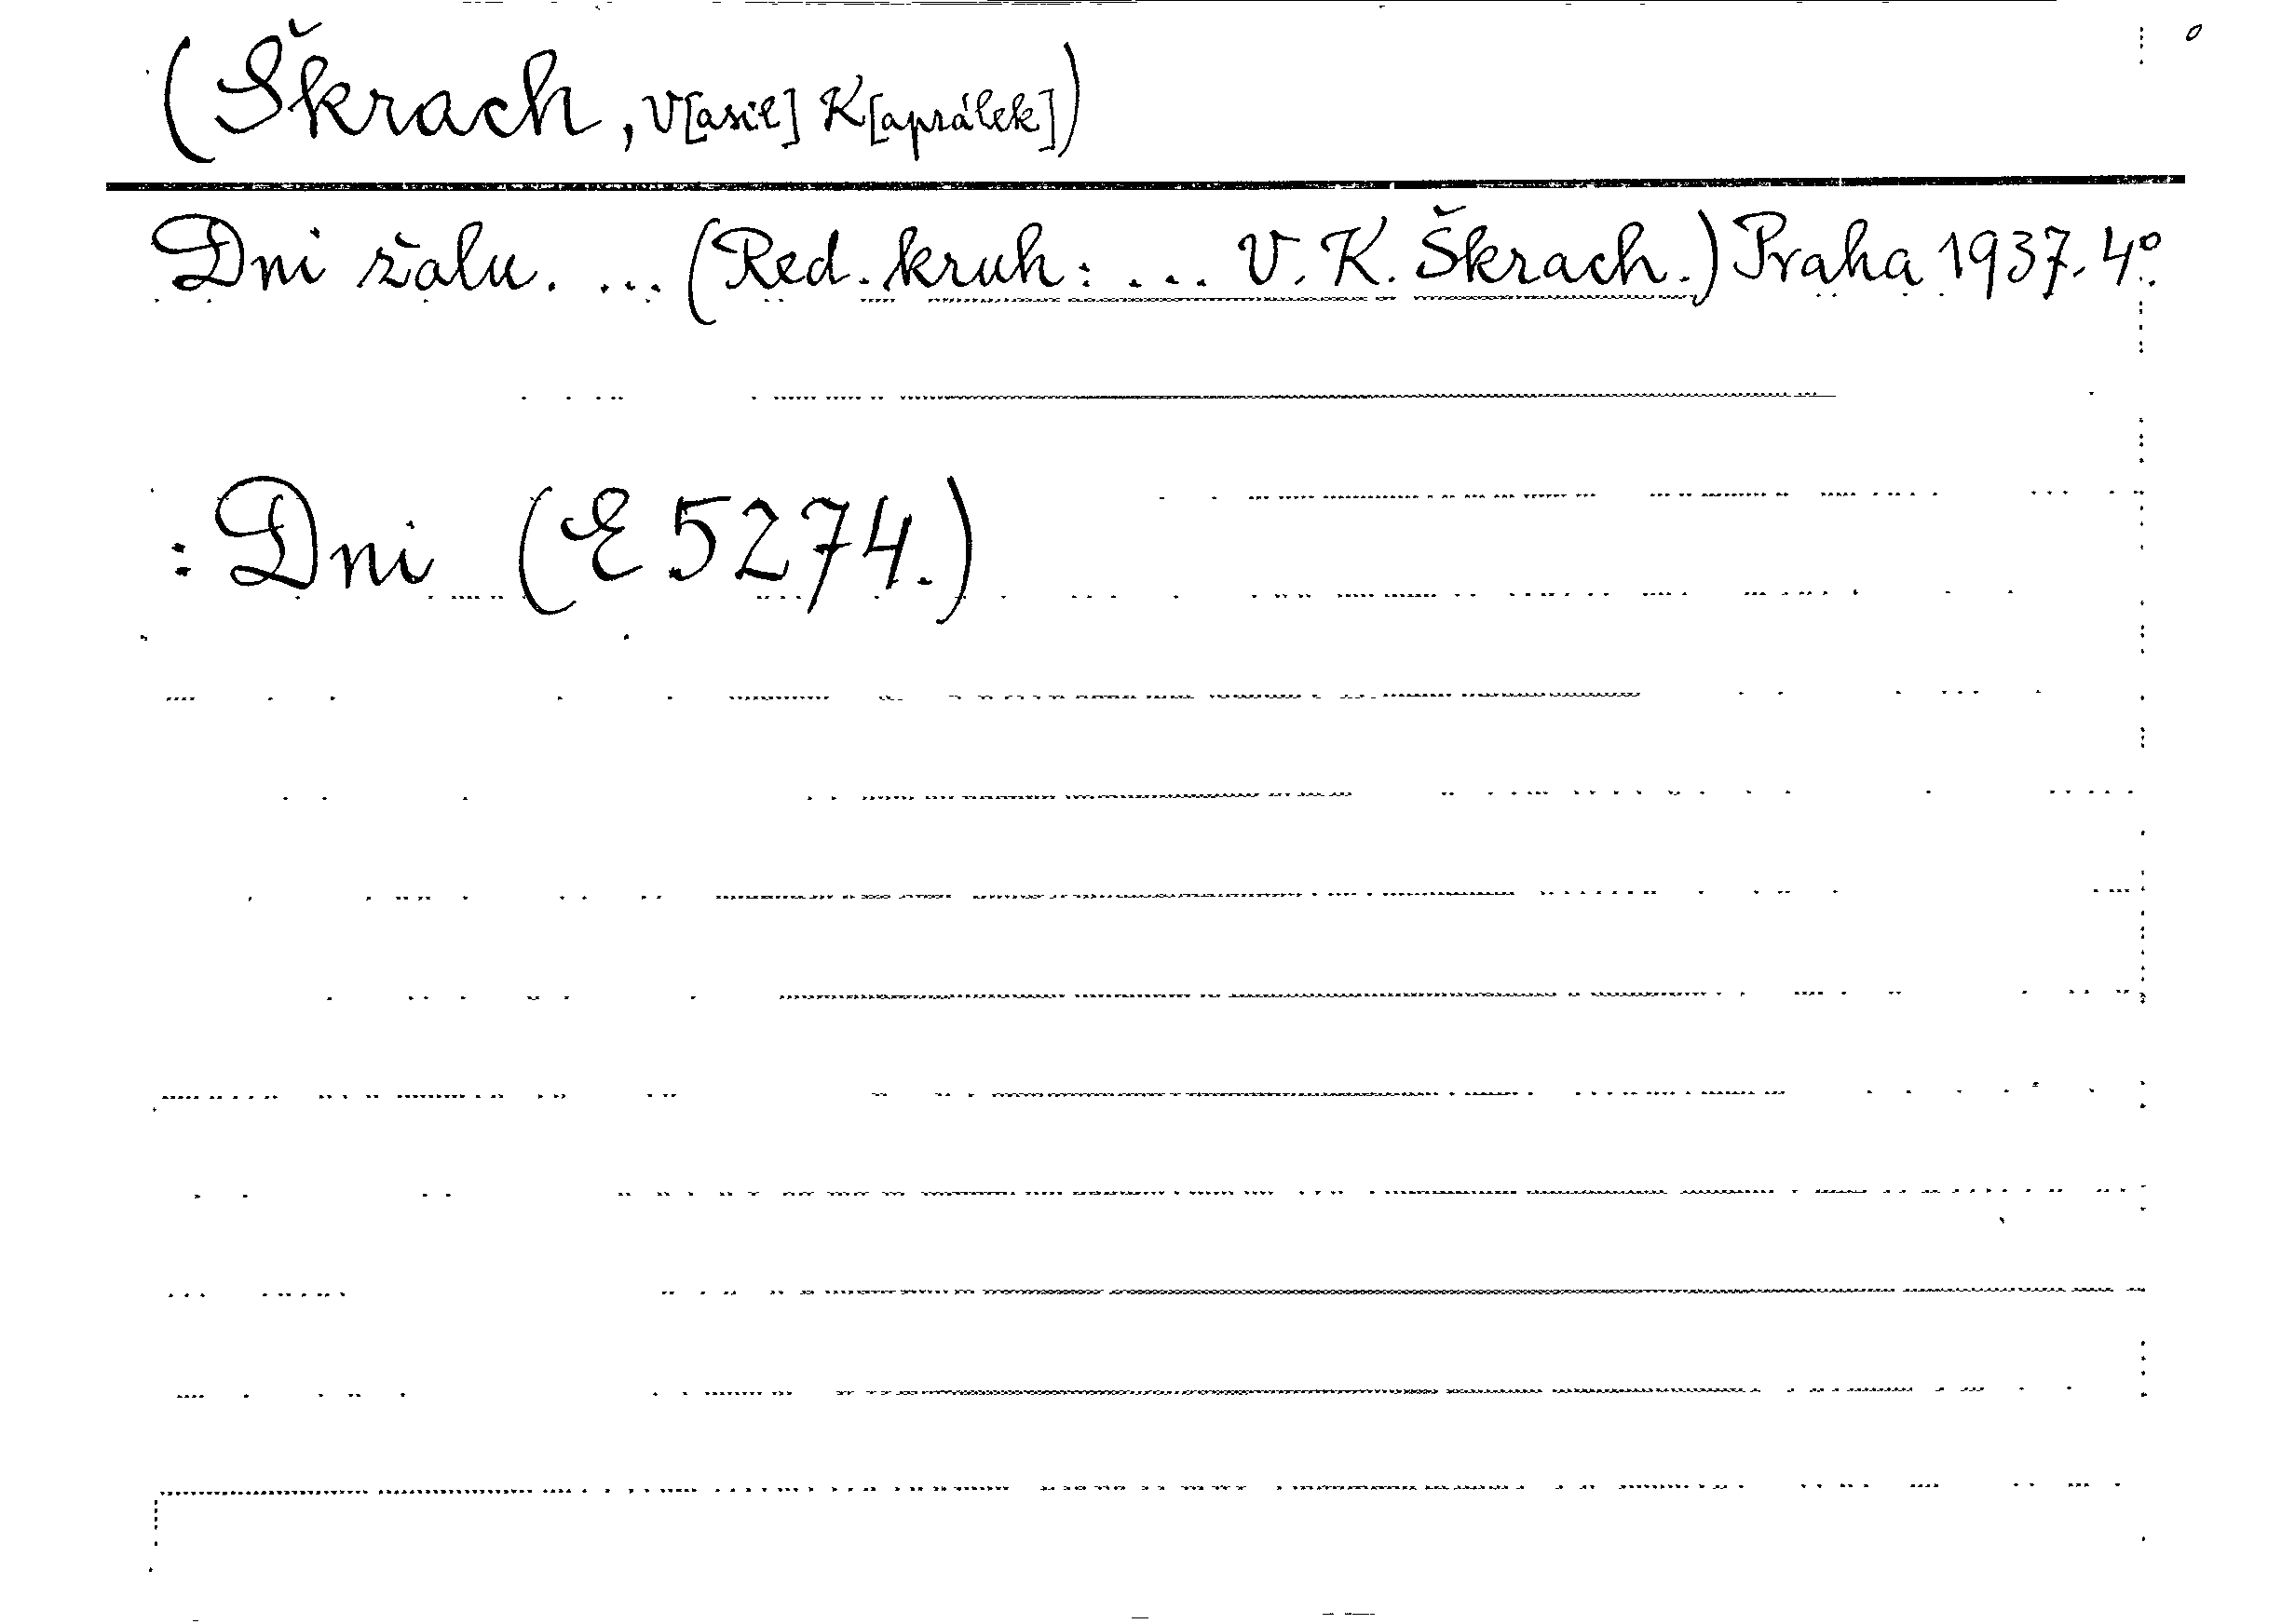 (Škrach, V[asil] K[aprálek])
Dni žalu. ... (Red. kruh: ... V. K. Škrach.) Praha 1937. 4°.
: Dni (E 5274.)